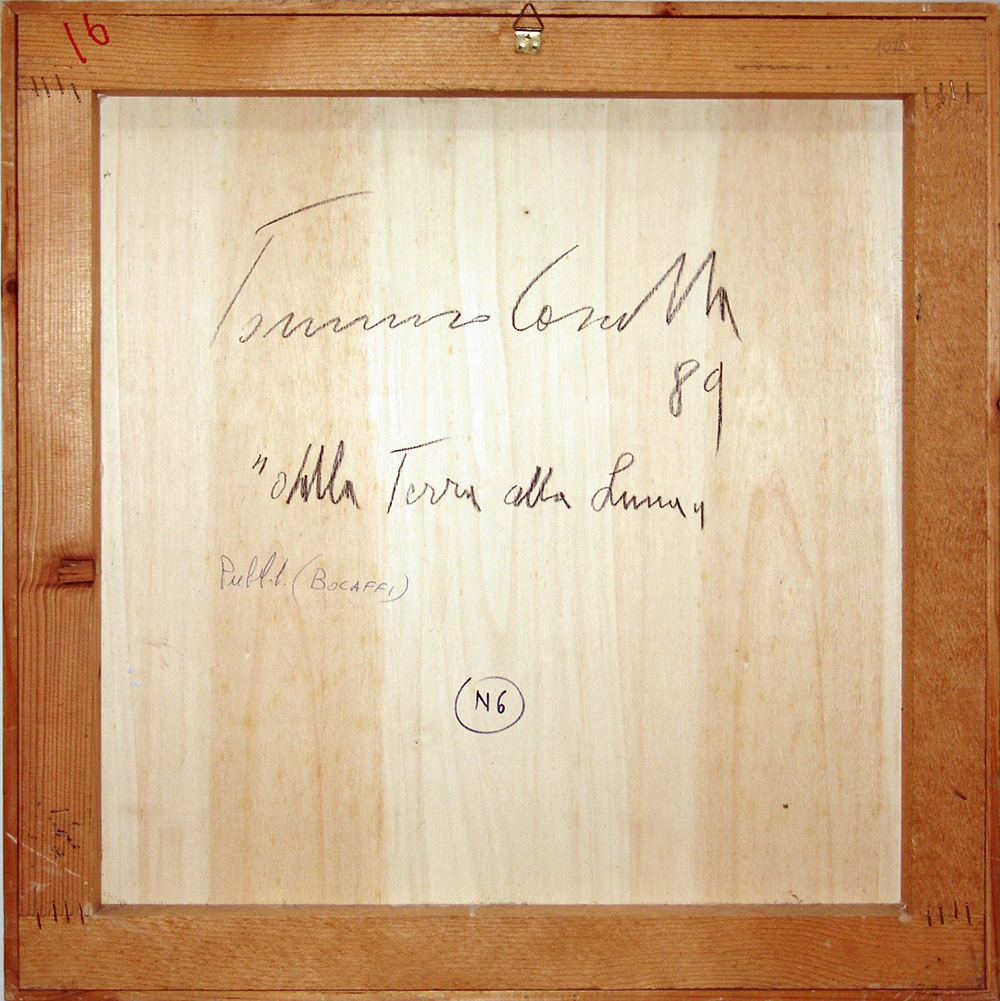 16
Tommaso Cascella
89
"dalla Terra alla Luna"
Pubbl. (BOCAFFI)
N6